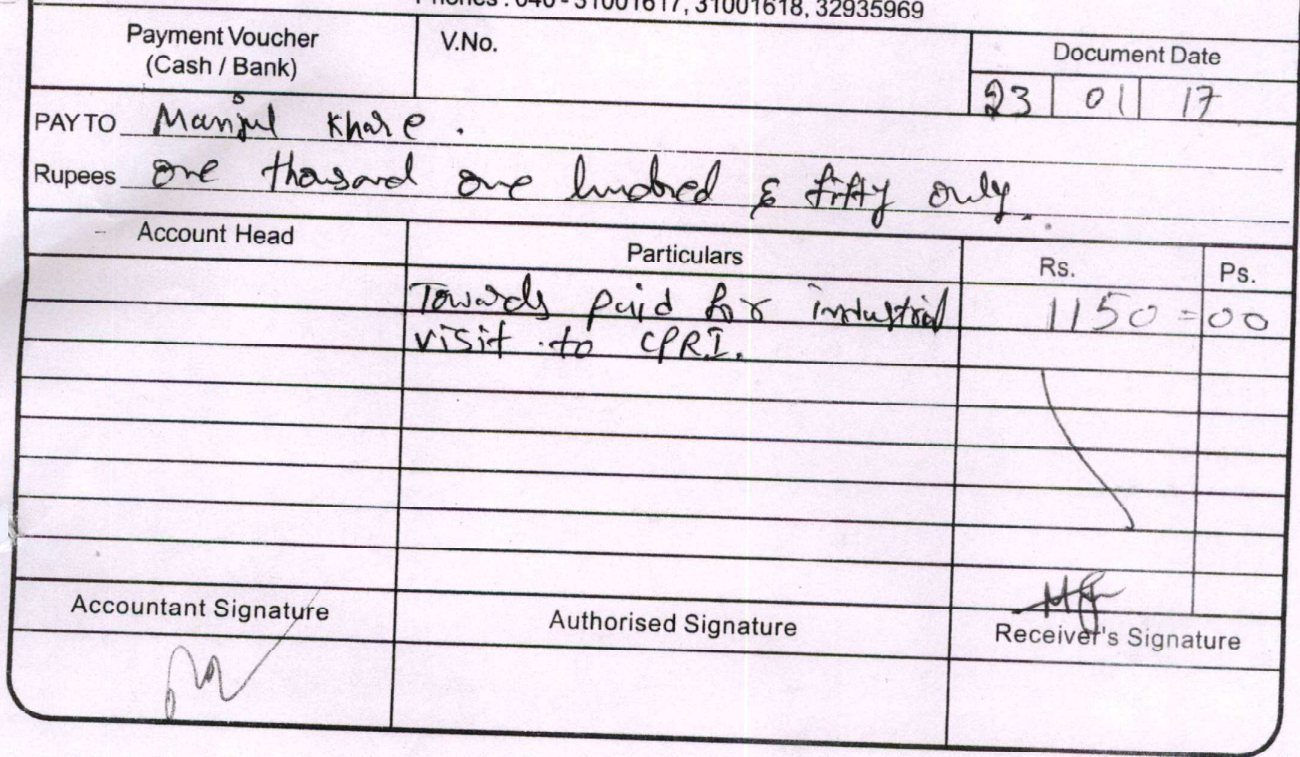 Phones : 040 - 31001617, 31001618, 32935969
Payment Voucher
(Cash / Bank)
V.No.
Document Date
23 01 17
PAY TO Manjul Khare .
Rupees one thousand one hundred & fifty only.
Account Head
Particulars
Rs.
Ps.
Towards paid for industrial
visit to CPRI.
1150=00
Accountant Signature
Authorised Signature
Receiver's Signature